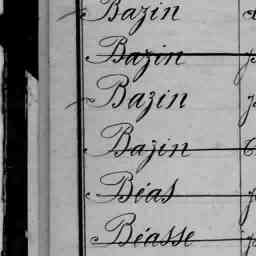 Bazin
Bazin
Bazin
Bazin
Béas
Béasse